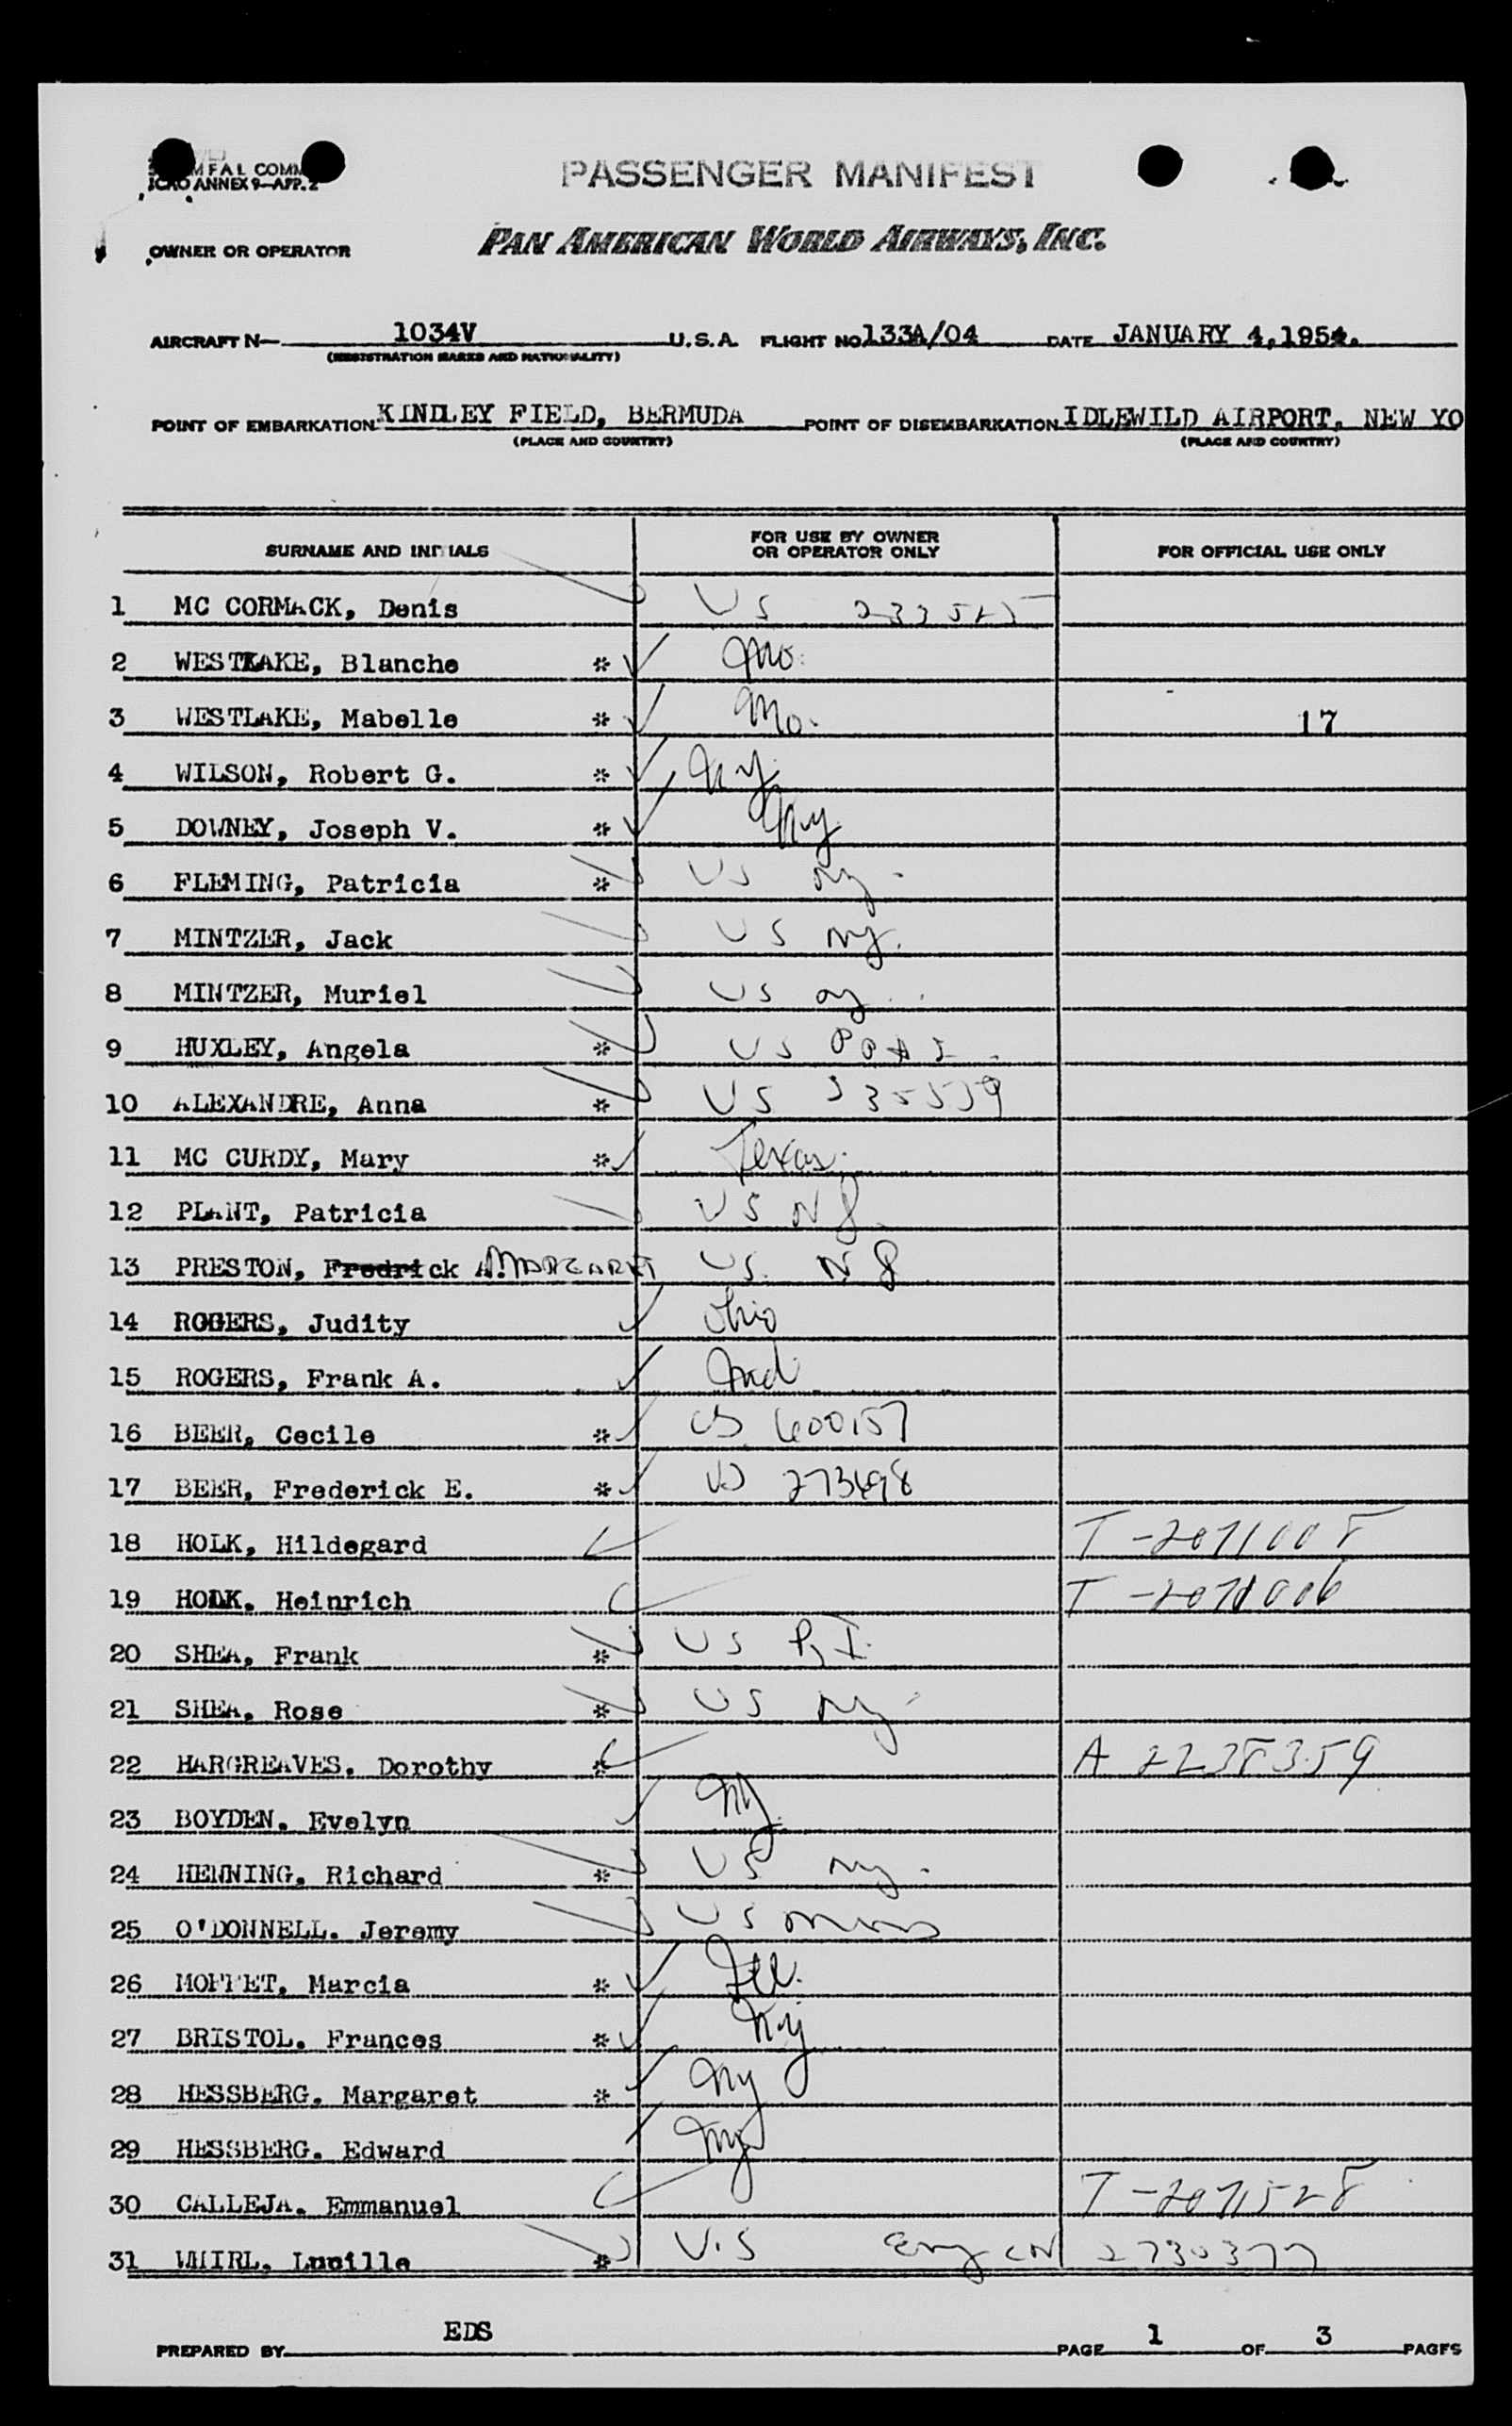 FAL COMM
ICAO ANNEX 9—APP. 2
PASSENGER MANIFEST
OWNER OR OPERATOR PAN AMERICAN WORLD AIRWAYS, INC.
AIRCRAFT N— 1034V U.S.A. FLIGHT NO 133A/04 DATE JANUARY 4,1954.
(REGISTRATION MARKS AND NATIONALITY)
POINT OF EMBARKATION KINDLEY FIELD, BERMUDA POINT OF DISEMBARKATION IDLEWILD AIRPORT, NEW YO
(PLACE AND COUNTRY) (PLACE AND COUNTRY)
SURNAME AND INITIALS FOR USE BY OWNER OR OPERATOR ONLY FOR OFFICIAL USE ONLY
1 MC CORMACK, Denis US
2 WESTLAKE, Blanche * Mo.
3 WESTLAKE, Mabelle * Mo. 17
4 WILSON, Robert G. * Ny.
5 DOWNEY, Joseph V. * Ny
6 FLEMING, Patricia * US Ny.
7 MINTZER, Jack US Ny.
8 MINTZER, Muriel US Ny
9 HUXLEY, Angela * US
10 ALEXANDRE, Anna * US
11 MC CURDY, Mary * Texas.
12 PLANT, Patricia US NJ
13 PRESTON, Fredrick A. MARGARET US. NJ
14 ROGERS, Judity Ohio
15 ROGERS, Frank A. Ind
16 BEER, Cecile * US 600157
17 BEER, Frederick E. * US 273698
18 HOLK, Hildegard T-2071005
19 HOLK. Heinrich T-2071006
20 SHEA, Frank * US R.I.
21 SHEA, Rose * US Ny
22 HARGREAVES. Dorothy * A 2238359
23 BOYDEN. Evelyn NY.
24 HENNING. Richard * US Ny.
25 O'DONNELL. Jeremy US Mass
26 MOFFET, Marcia * Ill.
27 BRISTOL. Frances * Ny
28 HESSBERG. Margaret * Ny
29 HESSBERG. Edward Ny
30 CALLEJA. Emmanuel T-2071528
31 WHIRL. Lucille * U.S Eng CN 2730377
PREPARED BY EDS PAGE 1 OF 3 PAGES